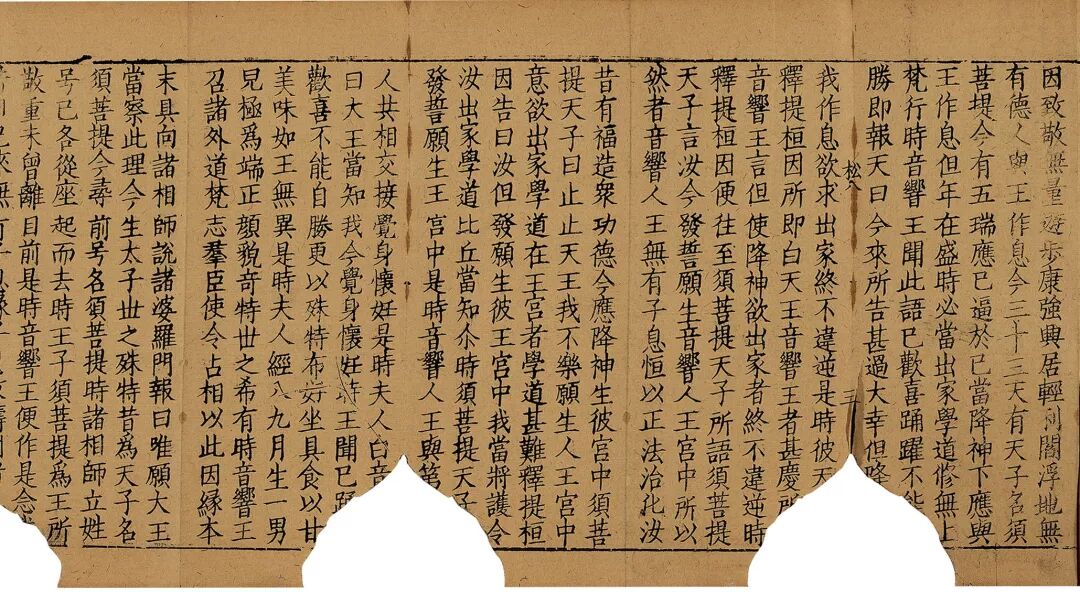 因致敬無量遊步康強興居輕利閻浮地無
有德人與王作息今三十三天有天子名須
菩提今有五瑞應已逼於已當降神下應與
王作息但年在盛時必當出家學道修無上
梵行時音響王聞此語已歡喜踊躍不能
勝即報天曰今來所告甚過大幸但降
松八 三
我作息欲求出家終不違逆是時彼天
釋提桓因所即白天王音響王者甚慶所
音響王言但使降神欲出家者終不違逆時
釋提桓因便往至須菩提天子所語須菩提
天子言汝今發誓願生音響人王宮中所以
然者音響人王無有子息恒以正法治化汝
昔有福造衆功德今應降神生彼宮中須菩
提天子曰止止天王我不樂願生人王宮中
意欲出家學道在王宮者學道甚難釋提桓
因告曰汝但發願生彼王宮中我當將護令
汝出家學道比丘當知尒時須菩提天子
發誓願生王宮中是時音響人王與第
人共相交接覺身懷妊是時夫人白音
曰大王當知我今覺身懷妊時王聞已踊
歡喜不能自勝更以殊特布好坐具食以甘
美味如王無異是時夫人經八九月生一男
兒極爲端正顔貌奇特世之希有時音響王
召諸外道梵志羣臣使令占相以此因緣本
末具向諸相師說諸婆羅門報曰唯願大王
當察此理今生太子世之殊特昔爲天子名
須菩提今尋前号名須菩提時諸相師立姓
号已各從座起而去時王子須菩提爲王所
敬重未曾離目前是時音響王便作是念